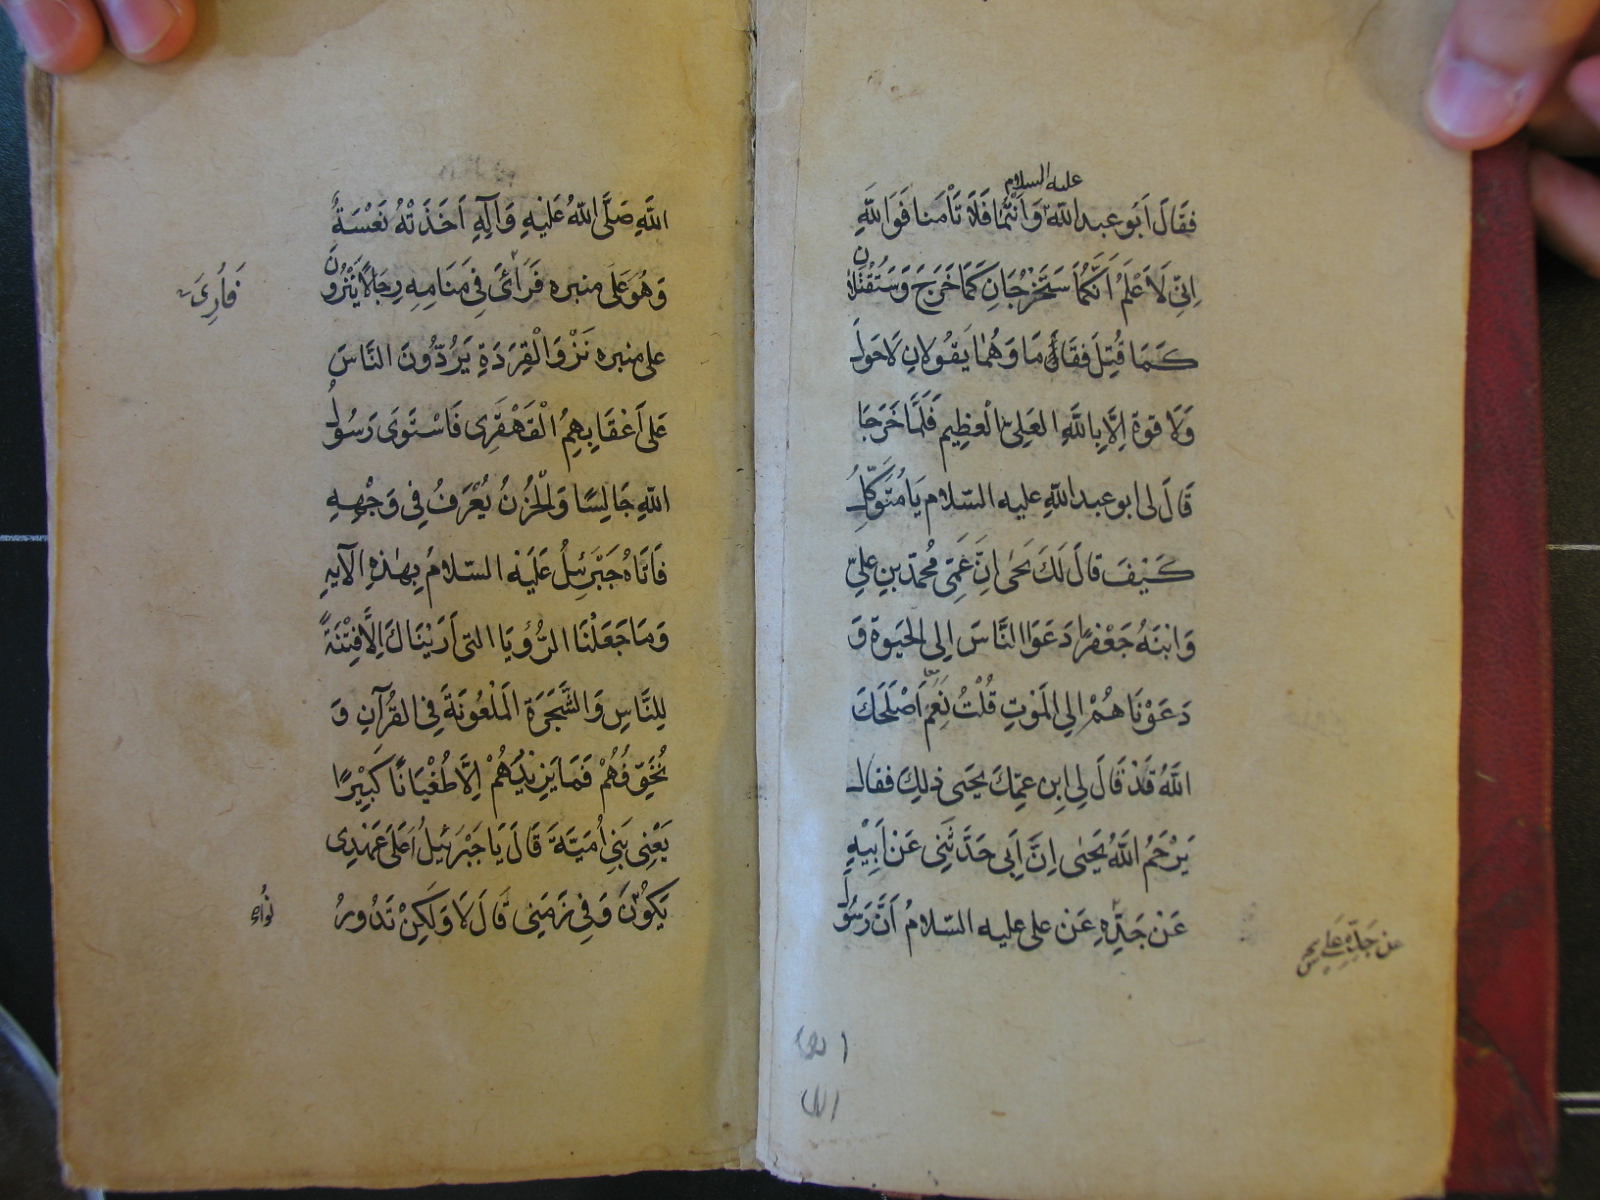 عليه السلام
فقَالَ اَبُو عبد اللهِ وَاَنْتُمَا فَلَا تَاْمَنا فَوَاللهِ
اِنِّى لَاَعْلَمُ اَنَّكُمَا سَتَخْرُجَانِ كَمَا خَرَجَ وَسَتُقْتَلَانِ
كَمَا قُتِلَ فقَامَا وَهُمَا يَقُولَانِ لَا حَولَ
وَلَا قوة اِلَّا بِاللهِ العَلِىِّ الْعَظِيمِ فَلَمَّا خَرَجَا
قَالَ لى ابو عبد اللهِ عليه السّلام يَا مُتَوَكِّلُ
كَيْفَ قالَ لَكَ يَحيٰى اِنَّ عَمِّى مُحمّد بن عَلِىّ
وَابْنَهُ جَعْفرًا دَعَوَا النَّاسَ اِلى الحَيٰوةِ وَ
دَعَوْنَاهُمْ اِلى المَوْتِ قُلْتُ نَعَمْ اَصْلَحَكَ
اللهُ قَدْ قَالَ لى ابن عمِّكَ يحيَى ذلِكَ فقال
يَرْحَمُ اللهُ يَحيٰى اِنَّ اَبى حَدَّثَنِى عَنْ اَبِيْهِ
عَنْ جَدِّهِ عَن علىٍ عليه السّلامُ اَنَّ رَسُولَ
عن جَدِّهِ عَلِى
اللهِ صَلَّى اللهُ عَلَيْهِ وَآلِهِ اَخَذَتْهُ نَعْسَةٌ
وَهُوَ عَلى منبره فَرَاَىٰ فِى مَنَامِهِ رِجَالًا يَنْزُونَ
فَاُرِىَ
على منبره نَزْوَ الْقِرَدَةِ يَرُدُّونَ النَّاسَ
عَلى اَعْقَابِهِمُ الْقَهْقَرٰى فَاسْتَوَى رَسُولُ
اللهِ جَالِسًا وَالْحُزْنُ يُعْرَفُ فِى وَجْهِهِ
فَاَتَاهُ جَبْرَئِلُ عَلَيْهِ السّلامُ بِهٰذِهِ الْآيهِ
وَمَا جَعَلْنَا الرُّؤيَا التى اَرَيْنَاكَ اِلَّا فِتْنَةً
لِلنَّاسِ وَالشَّجَرَة المَلْعُونَةَ فِى القُرْآنِ وَ
نُخَوِّفُهُمْ فَمَا يَزِيْدُهُمْ اِلَّا طُغْيَانًا كَبِيْرًا
يَعْنِى بَنِى اُمَيَّةَ قَالَ يَا جَبْرَئِيلُ اَعَلىٰ عَهْدِى
يَكُونُونَ وَفِى زَمَنِى قَالَ لَا وَلٰكِنْ تَدُورُ